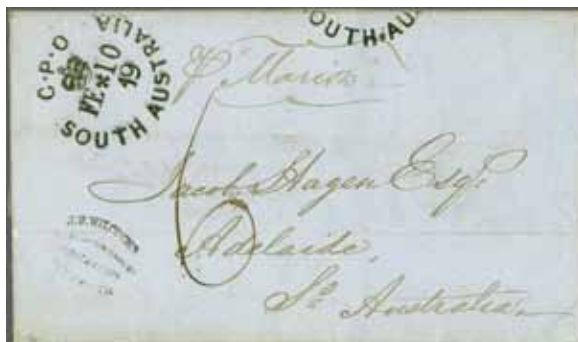 G.P.O
SOUTH AUSTRALIA
FE*10
19
SOUTH.AU
p "Marion"
6
Jacob Hagen Esqr.
Adelaide,
So. Australia.
J.B.WILCOCKS